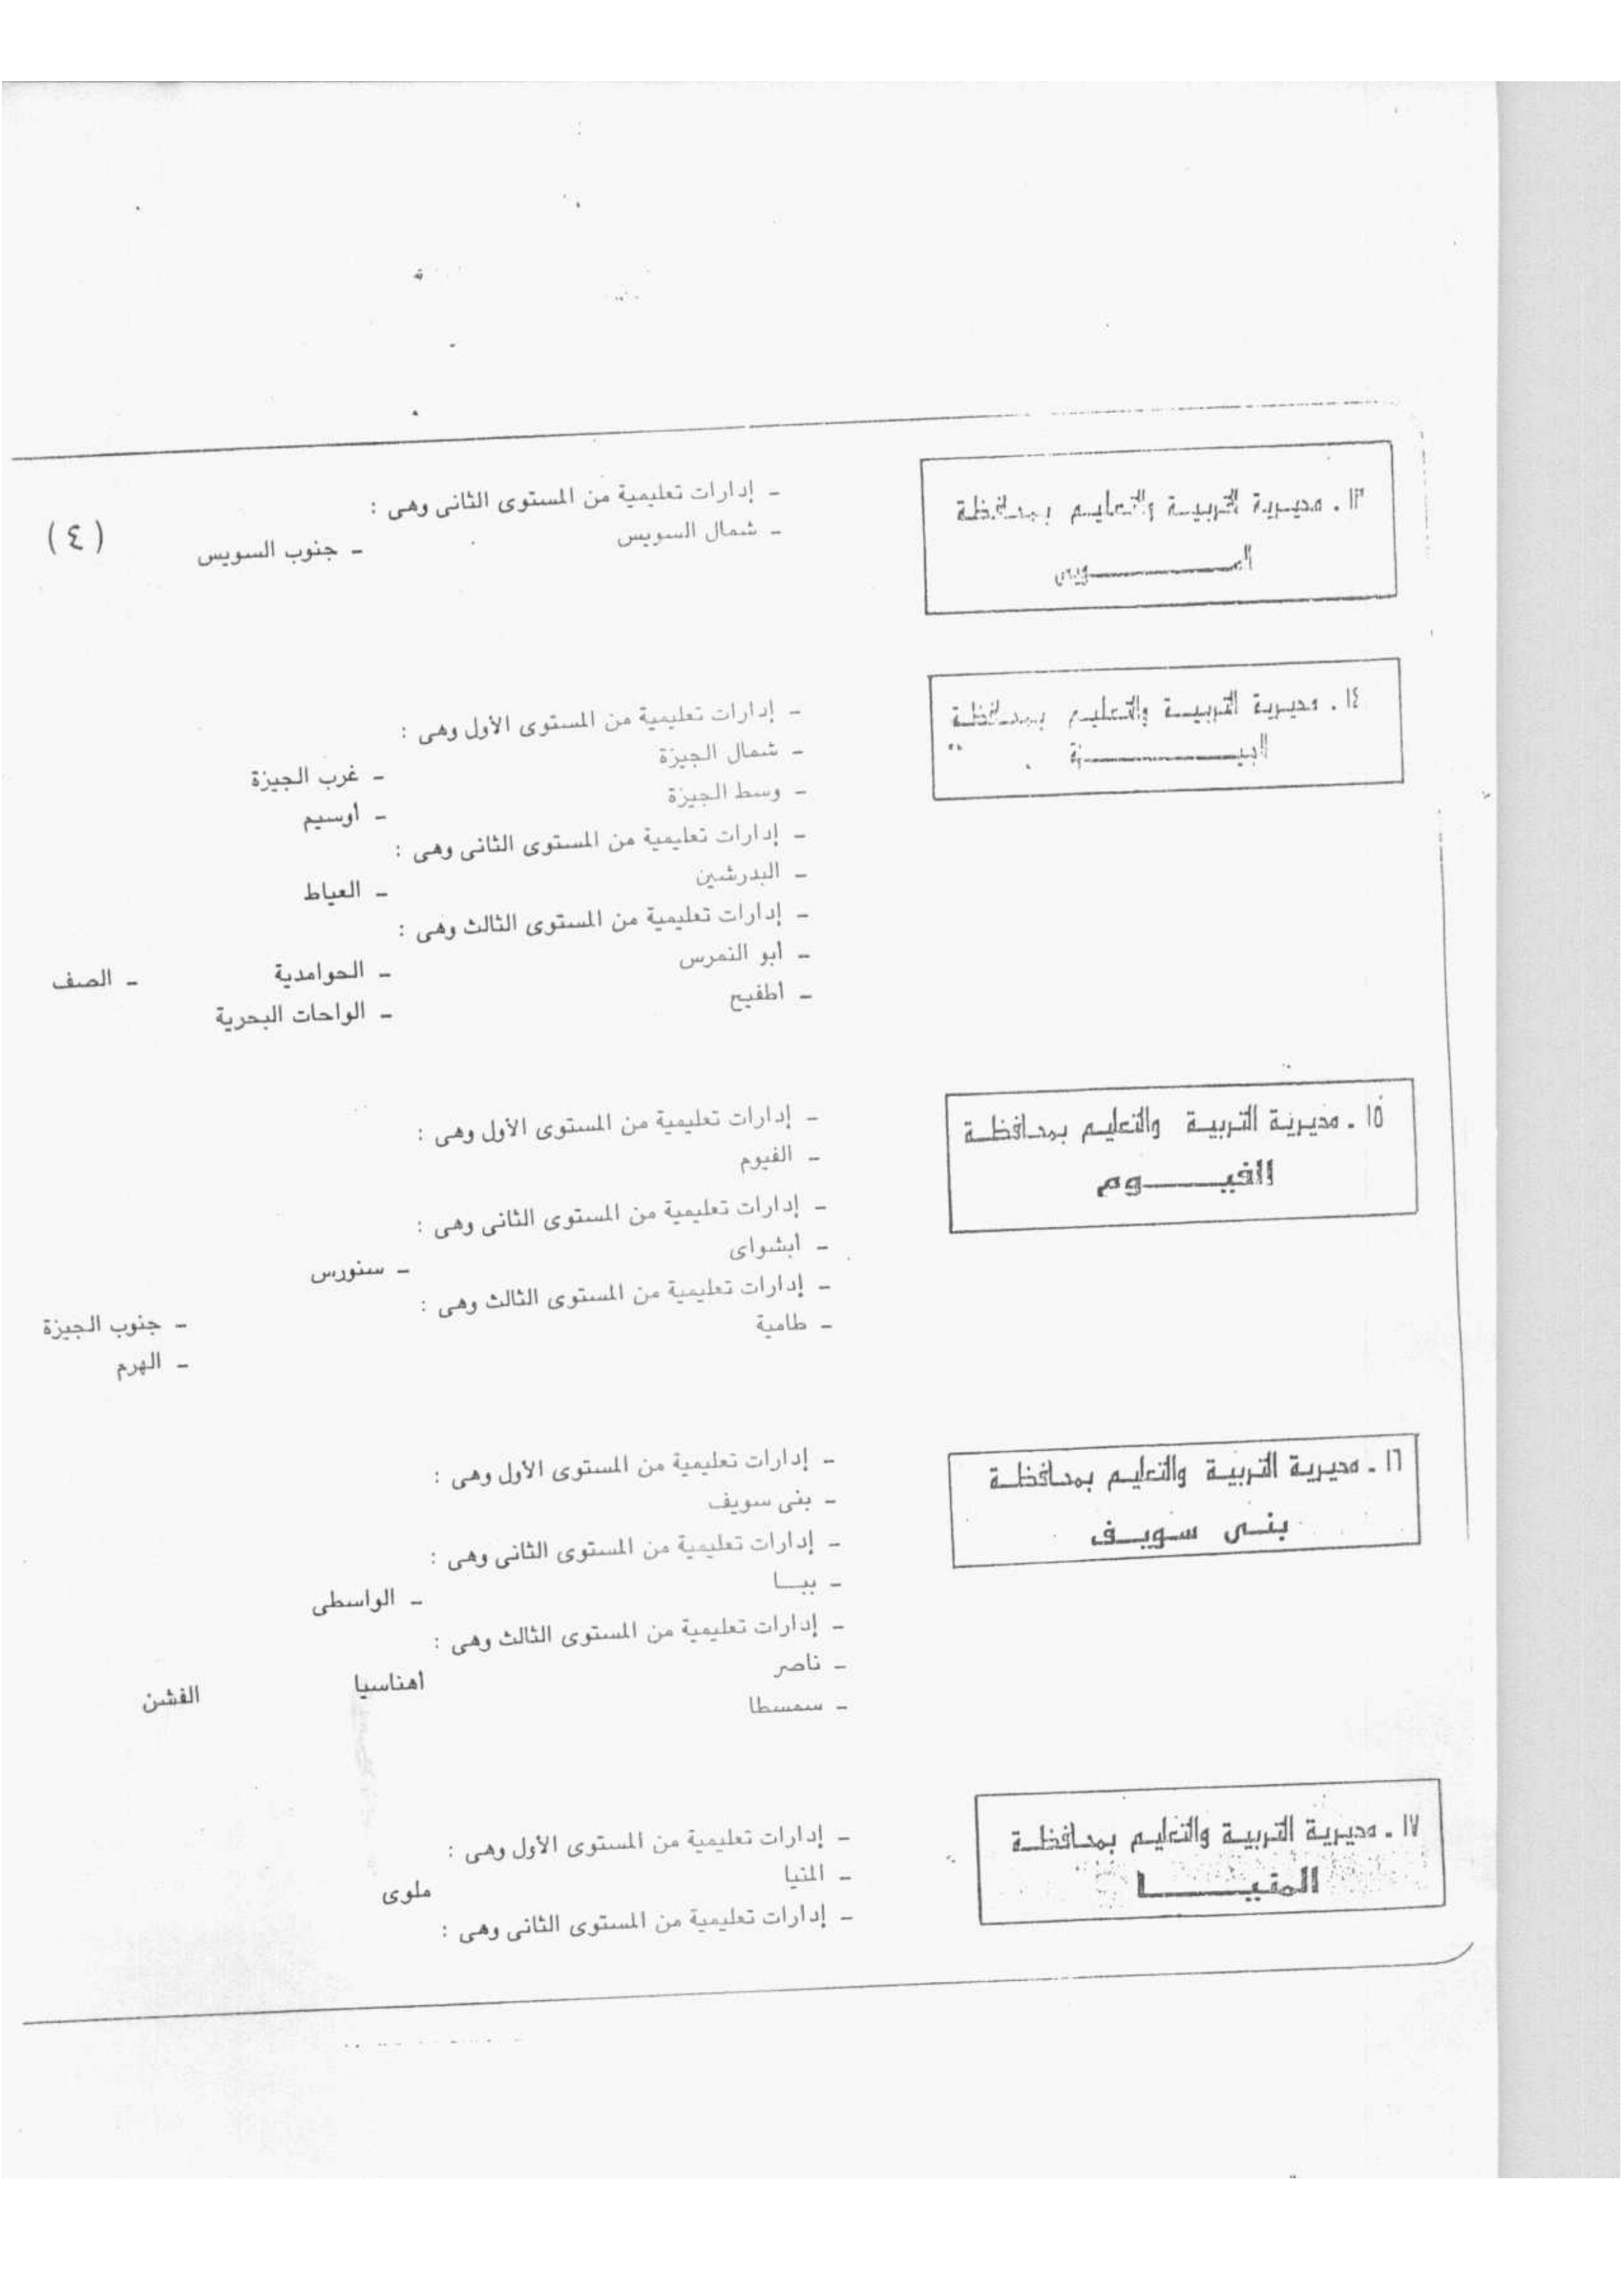 (٤)
١٣ ـ مديرية التربية والتعليم بمحافظة
السويس
ـ إدارات تعليمية من المستوى الثانى وهى :
ـ شمال السويس ـ جنوب السويس
١٤ ـ مديرية التربية والتعليم بمحافظة
الجيزة
ـ إدارات تعليمية من المستوى الأول وهى :
ـ شمال الجيزة ـ غرب الجيزة
ـ وسط الجيزة ـ أوسيم
ـ إدارات تعليمية من المستوى الثانى وهى :
ـ البدرشين ـ العياط
ـ إدارات تعليمية من المستوى الثالث وهى :
ـ أبو النمرس ـ الحوامدية ـ الصف
ـ أطفيح ـ الواحات البحرية
١٥ ـ مديرية التربية والتعليم بمحافظة
الفيوم
ـ إدارات تعليمية من المستوى الأول وهى :
ـ الفيوم
ـ إدارات تعليمية من المستوى الثانى وهى :
ـ أبشواى ـ سنورس
ـ إدارات تعليمية من المستوى الثالث وهى :
ـ طامية ـ جنوب الجيزة
ـ الهرم
١٦ ـ مديرية التربية والتعليم بمحافظة
بنى سويف
ـ إدارات تعليمية من المستوى الأول وهى :
ـ بنى سويف
ـ إدارات تعليمية من المستوى الثانى وهى :
ـ ببا ـ الواسطى
ـ إدارات تعليمية من المستوى الثالث وهى :
ـ ناصر أهناسيا الفشن
ـ سمسطا
١٧ ـ مديرية التربية والتعليم بمحافظة
المنيا
ـ إدارات تعليمية من المستوى الأول وهى :
ـ المنيا ملوى
ـ إدارات تعليمية من المستوى الثانى وهى :